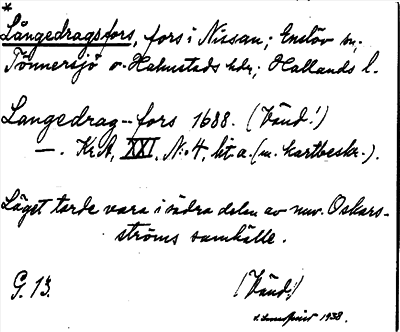 *
Långedragsfors, fors i Nissan; Enslöv sn,
Tönnersjö o. Halmstads hdr; Hallands l.
Langedrag-- fors 1688. (Vänd!)
—. KrA, XXI, N:o 4, lit. a. (m. kartbeskr.).
Läget torde vara i södra delen av nuv. Oskars-
ströms samhälle.
G. 13. (Vänd!)
1938.